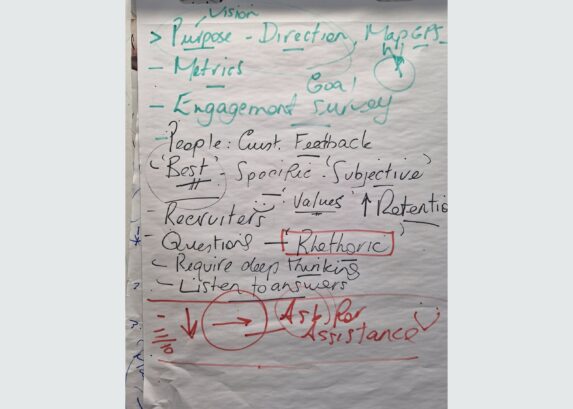 Vision
> Purpose - Direction, Map GPS
- Metrics
Goal
- Engagement Survey
?
- People: Cust. Feedback
'Best' - Specific 'Subjective'
"Values" ↑ Retentio
- Recruiters
- Questions - "Rhethoric"
- Require deep thinking
- Listen to answers
↓ → Ask for
Assistance